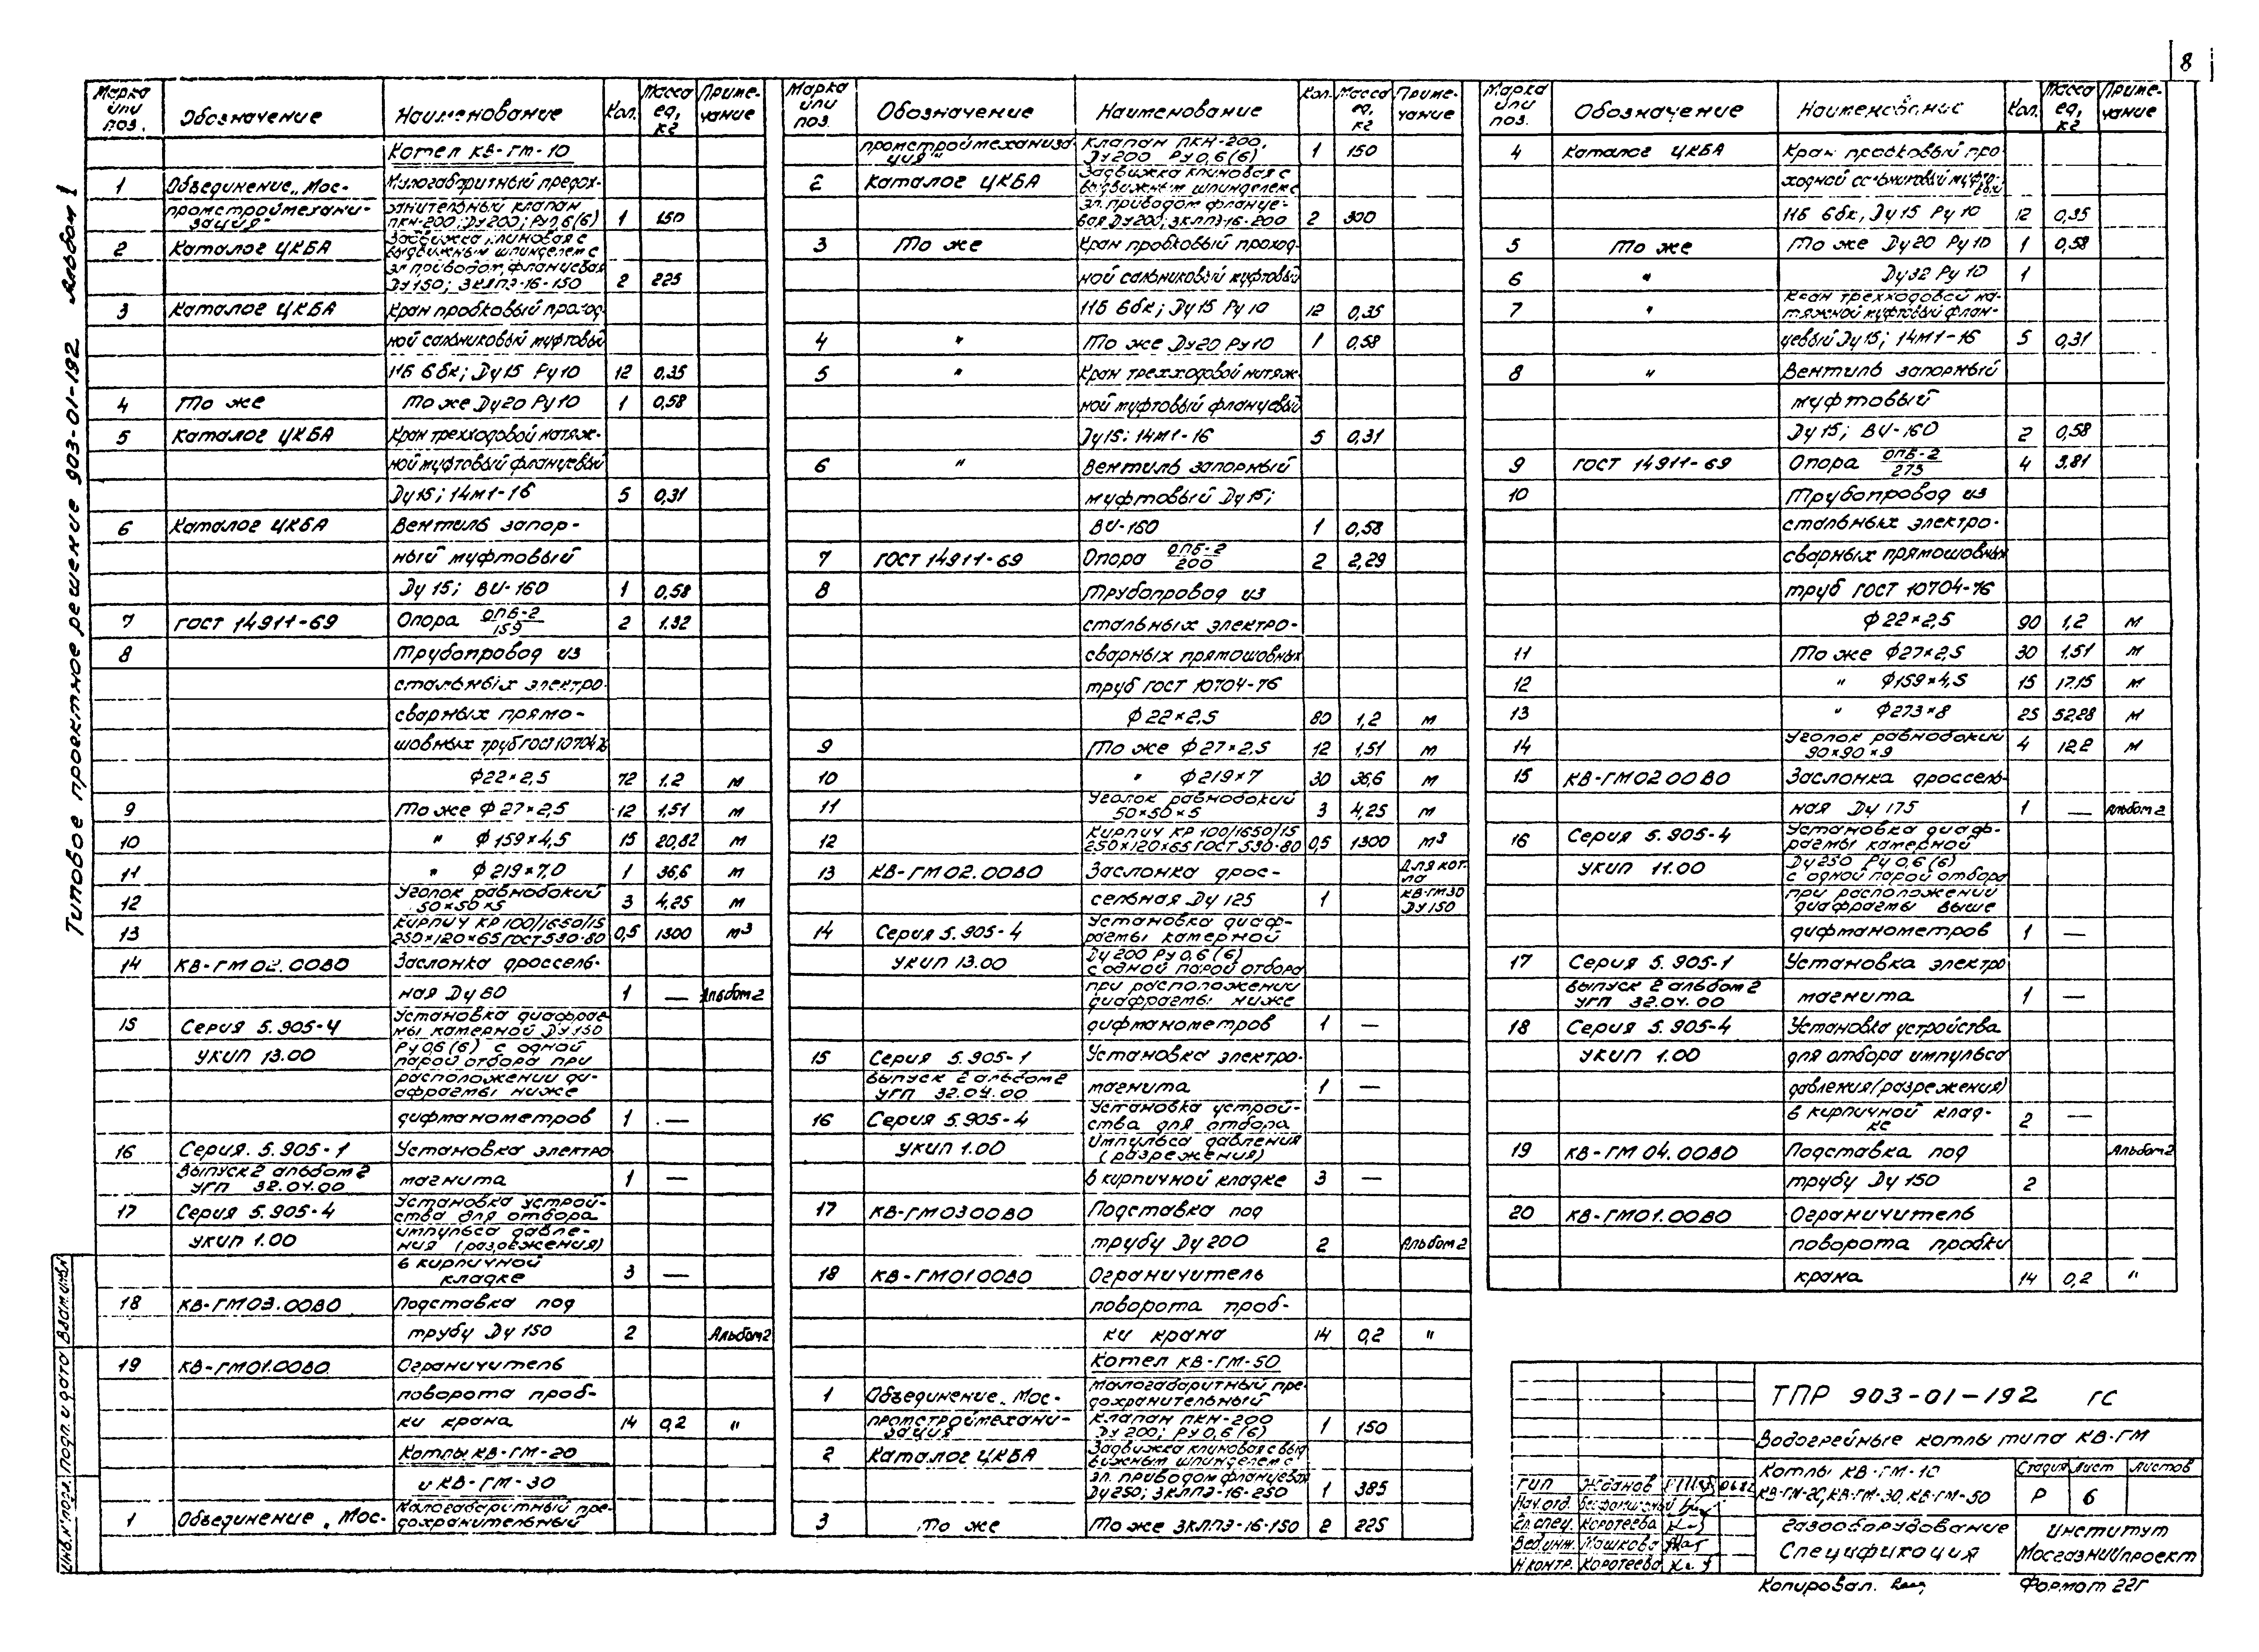 8
Типовое проектное решение 903-01-192 Альбом 1
Марка или поз. Обозначение Наименование Кол. Масса ед, кг Приме-чание
Котел КВ-ГМ-10
1 Объединение „Мос- Малогабаритный предох-
промстроймехани-зация" ранительный клапан ПКН-200; Ду200; Ру0,6(6) 1 150
2 Каталог ЦКБА Задвижка клиновая с выдвижным шпинделем с
эл. приводом, фланцевая Ду150; ЗКЛПЭ-16-150 2 225
3 Каталог ЦКБА Кран пробковый проход-
ной сальниковый муфтовый
11Б 6бк; Ду15 Ру10 12 0,35
4 То же То же Ду20 Ру10 1 0,58
5 Каталог ЦКБА Кран трехходовой натяж-
ной муфтовый фланцевый
Ду15; 14М1-16 5 0,31
6 Каталог ЦКБА Вентиль запор-
ный муфтовый
Ду15; ВИ-160 1 0,58
7 ГОСТ 14911-69 Опора ОПБ-2/159 2 1.32
8 Трубопровод из
стальных электро-
сварных прямо-
шовных труб ГОСТ 10704-76
Ф22×2,5 72 1.2 м
9 То же Ф27×2,5 12 1,51 м
10 " Ф159×4,5 15 20,82 м
11 " Ф219×7,0 1 36,6 м
12 Уголок равнобокий 50×50×5 3 4,25 м
13 Кирпич КР 100/1650/15 250×120×65 ГОСТ 530-80 0,5 1300 м3
14 КВ-ГМ 02.00В0 Заслонка дроссель-
ная Ду 80 1 — Альбом 2
15 Серия 5.905-4 Установка диафраг-мы камерной Ду150
УКИП 13.00 Ру0,6(6) с одной парой отбора при
расположении ди-афрагмы ниже
дифманометров 1 —
16 Серия. 5.905-1 Установка электро
Выпуск 2 альбом 2 УГП 32.04.00 магнита 1 —
17 Серия 5.905-4 Установка устрой-ства для отбора
УКИП 1.00 импульса давле-ния (разрежения)
в кирпичной кладке 3 —
18 КВ-ГМ03.00В0 Подставка под
трубу Ду 150 2 Альбом 2
19 КВ-ГМ01.00В0 Ограничитель
поворота проб-
ки крана 14 0,2 "
Котлы КВ-ГМ-20
и КВ-ГМ-30
1 Объединение „Мос- Малогабаритный пре-дохранительный
Марка или поз. Обозначение Наименование Кол. Масса ед, кг Приме-чание
промстроймеханиза ция" Клапан ПКН-200, Ду200 Ру0,6(6) 1 150
2 Каталог ЦКБА Задвижка клиновая с выдвижным шпинделем с
эл.приводом фланце-вая Ду200; ЗКЛПЭ-16-200 2 300
3 То же Кран пробковый проход-
ной сальниковый муфтовый
11Б 6бк; Ду15 Ру10 12 0,35
4 " То же Ду20 Ру10 1 0.58
5 " Кран трехходовой натяж-
ной муфтовый фланцевый
Ду15; 14М1-16 5 0,31
6 " Вентиль запорный
муфтовый Ду15;
ВИ-160 1 0,58
7 ГОСТ 14911-69 Опора ОПБ-2/200 2 2,29
8 Трубопровод из
стальных электро-
сварных прямошовных
труб ГОСТ 10704-76
Ф22×2.5 80 1,2 м
9 То же Ф27×2,5 12 1,51 м
10 " Ф219×7 30 36,6 м
11 Уголок равнобокий 50×50×5 3 4,25 м
12 Кирпич КР 100/1650/15 250×120×65 ГОСТ 530-80 0,5 1300 м3
13 КВ-ГМ02.00В0 Заслонка дрос- Для кот-ла
сельная Ду 125 1 КВ-ГМ30 Ду150
14 Серия 5.905-4 Установка диаф-рагмы камерной
УКИП 13.00 Ду200 Ру0,6(6) с одной парой отбора
при расположении диафрагмы ниже
дифманометров 1 —
15 Серия 5.905-1 Установка электро-
Выпуск 2 альбом 2 УГП 32.04.00 магнита 1 —
16 Серия 5.905-4 Установка устрой-ства для отбора
УКИП 1.00 импульса давления (разрежения)
в кирпичной кладке 3 —
17 КВ-ГМ0300В0 Подставка под
трубу Ду 200 2 Альбом 2
18 КВ-ГМ0100В0 Ограничитель
поворота проб-
ки крана 14 0,2 "
Котел КВ-ГМ-50
1 Объединение „Мос- Малогабаритный пре-дохранительный
промстроймехани-зация Клапан ПКН-200 Ду200; Ру0,6(6) 1 150
2 Каталог ЦКБА Задвижка клиновая с выд вижным шпинделем с
эл. приводом фланцевая Ду250; ЗКЛПЭ-16-250 1 385
3 То же То же ЗКЛПЭ-16-150 2 225
Марка или поз. Обозначение Наименование Кол. Масса ед, кг Приме-чание
4 Каталог ЦКБА Кран пробковый про-
ходной сальниковый муфто-вый
11Б 6бк, Ду15 Ру10 12 0,35
5 То же То же Ду20 Ру10 1 0,58
6 " Ду32 Ру10 1
7 " Кран трехходовой на-тяжной муфтовый флан-
цевый Ду15; 14М1-16 5 0,31
8 " Вентиль запорный
муфтовый
Ду15; ВИ-160 2 0,58
9 ГОСТ 14911-69 Опора ОПБ-2/273 4 3,81
10 Трубопровод из
стальных электро-
сварных прямошовных
труб ГОСТ 10704-76
Ф22×2,5 90 1,2 м
11 То же Ф27×2,5 30 1.51 м
12 " Ф159×4,5 15 17.15 м
13 " Ф273×8 25 52,28 м
14 Уголок равнобокий 90×90×9 4 12,2 м
15 КВ-ГМ02 00В0 Заслонка дроссель-
ная Ду 175 1 — Альбом 2
16 Серия 5.905-4 Установка диаф-рагмы камерной
УКИП 11.00 Ду250 Ру0,6(6) с одной парой отбора
при расположении диафрагмы выше
дифманометров 1 —
17 Серия 5.905-1 Установка электро
Выпуск 2 альбом 2 УГП 32.04.00 магнита 1 —
18 Серия 5.905-4 Установка устройства
УКИП 1.00 для отбора импульса
давления (разрежения)
в кирпичной клад-ке 2 —
19 КВ-ГМ 04.00В0 Подставка под Альбом 2
трубу Ду 150 2
20 КВ-ГМ01.00В0 Ограничитель
поворота пробки
крана 14 0,2 "
ТПР 903-01-192 ГС
Водогрейные котлы типа КВ-ГМ
Котлы КВ-ГМ-10 КВ-ГМ-20, КВ-ГМ-30, КВ-ГМ-50
Стадия Лист Листов
Р 6
Газооборудование
Спецификация
Институт
МосгазНИИпроект
ГИП Жданов 0682
Нач.отд.
Гл.спец. Коротеева
Вед.инж. Машкова
Н.контр. Коротеева
Копировал. Формат 22Г
Инв.№подл. Подп. и дата Взам.инв.№